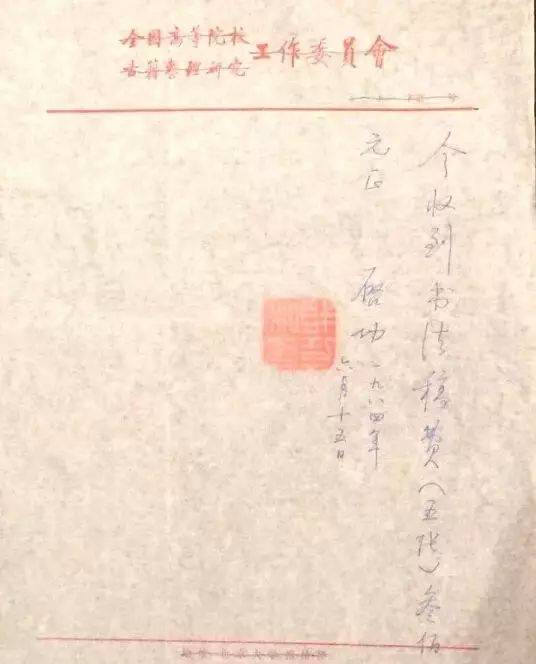 全国高等院校
古籍整理研究
工作委員會
今收到书法稿费（五张）叁佰
元正
启功 一九八四年
六月十五日